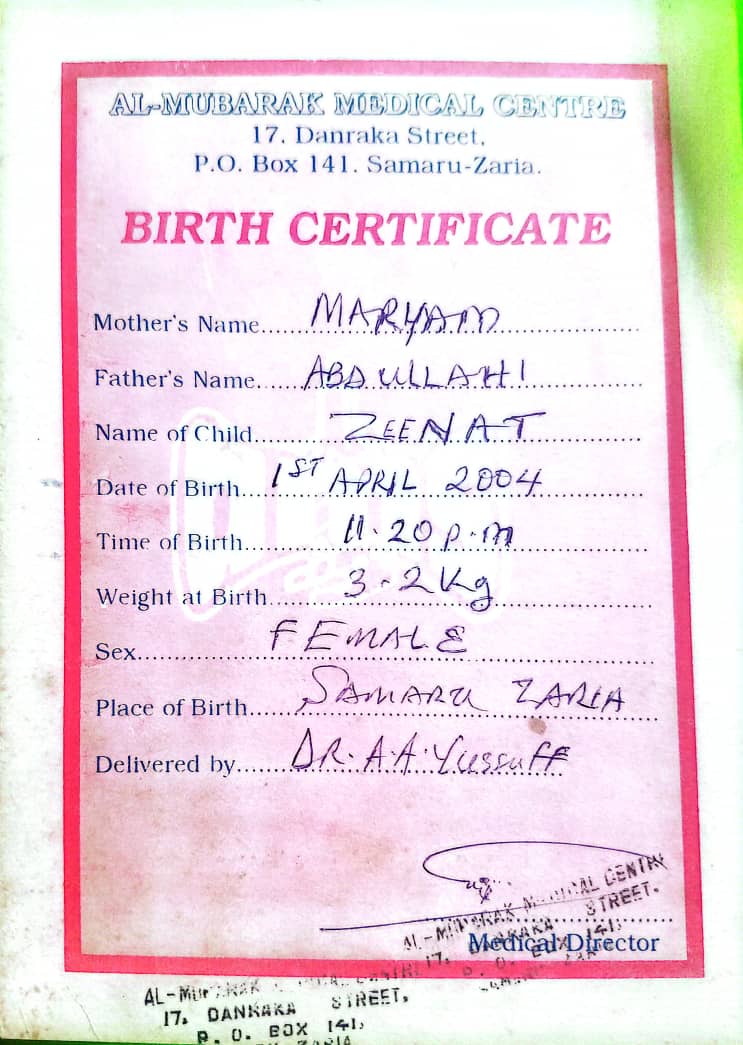 AL-MUBARAK MEDICAL CENTRE
17, Danraka Street,
P.O. Box 141. Samaru-Zaria.
BIRTH CERTIFICATE
Mother's Name MARYAM
Father's Name ABDULLAHI
Name of Child ZEENAT
Date of Birth 1ST APRIL 2004
Time of Birth 11.20 p.m
Weight at Birth 3.2 Kg
Sex FEMALE
Place of Birth SAMARU ZARIA
Delivered by DR. A.A. Yussuff
AL-MUBARAK MEDICAL CENTRE
17, DANRAKA STREET.
P. O. BOX 141,
Medical Director
AL-MUBARAK MEDICAL CENTRE
17, DANRAKA STREET,
P. O. BOX 141,
ZARIA